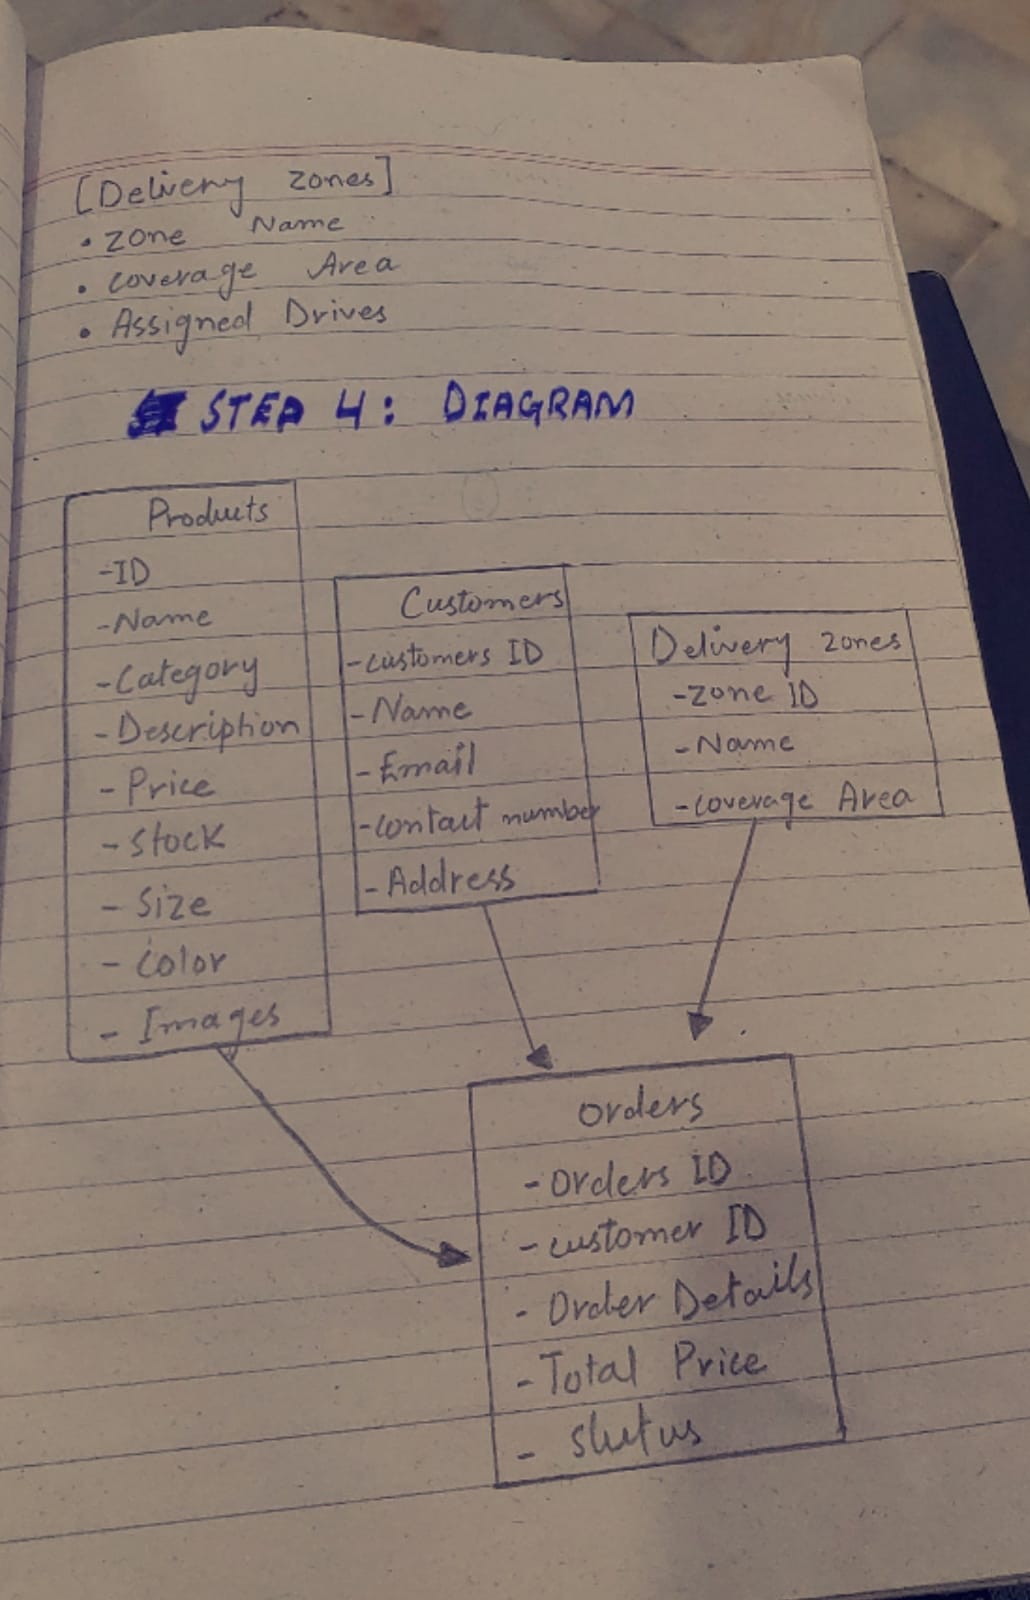 [Delivery zones]
• zone Name
• coverage Area
• Assigned Drives
STEP 4: DIAGRAM
Products
-ID
-Name
-Category
-Description
- Price
- Stock
- Size
- Color
- Images
Customers
-customers ID
-Name
-Email
-contact number
-Address
Delivery zones
-zone ID
-Name
-coverage Area
orders
-Orders ID
-customer ID
- Order Details
-Total Price
- status